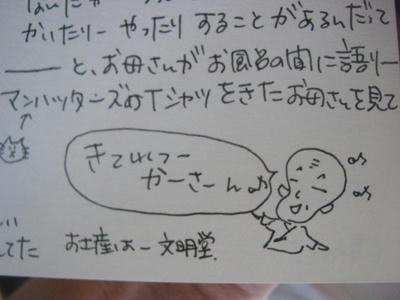 かいたりー やったり することが あるんだって
―― と、お母さんが お風呂の間に語りー
マンハッタンズのTシャツをきたお母さんを見て
かーさーん♪
てた お土産はー 文明堂.